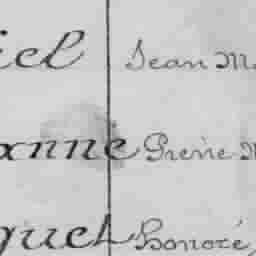 iel Jean M
anne Pierre M
quet honoré